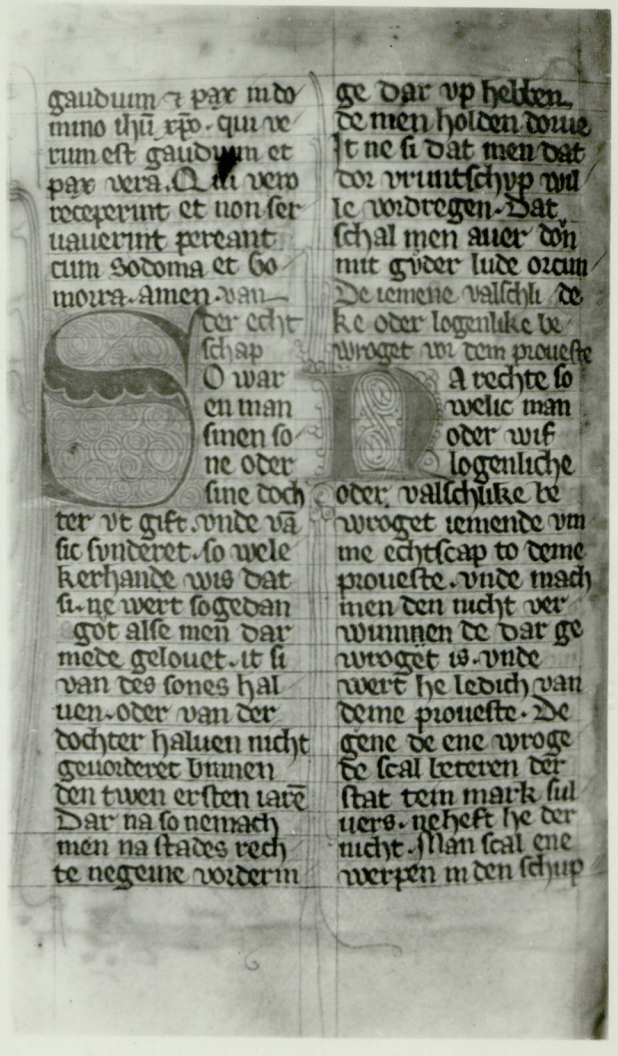 gaudium ⁊ pax in do
mino ihū xp̄o · qui ve
rum est gaudium et
pax vera. Qui vero
receperint et non ser
uauerint pereant
cum sodoma et Go
morra. amen. van
der echt
schap
SO war
en man
sinen so
ne oder
sine doch
ter vt gift. vnde vā
sic sunderet. so wele
kerhande wis dat
si. ne wert so gedan
got alse men dar
mede gelouet. it si
van des sones hal
uen. oder van der
dochter haluen nicht
geuorderet binnen
den twen ersten iarē
Dar na so ne mach
men na stades rech
te negeine vorderin
ge dar vp hebben.
de men holden dorue
It ne si dat men dat
dor vruntschvp wil
le vordregen. Dat
schal men auer don
mit gvder lude orcun
De iemene valschli de
ke oder logenlike be
wroget vor dem proueste
NA rechte so
welic man
oder wif
logenliche
oder valschlike be
wroget iemende vm
me echtscap to deme
proueste. vnde mach
men den nicht ver
wunnen de dar ge
wroget is. vnde
wert he ledich van
deme proueste. De
gene de ene wroge
de scal beteren der
stat tein mark sul
uers. ne heft he der
nicht. Man scal ene
werpen in den schup